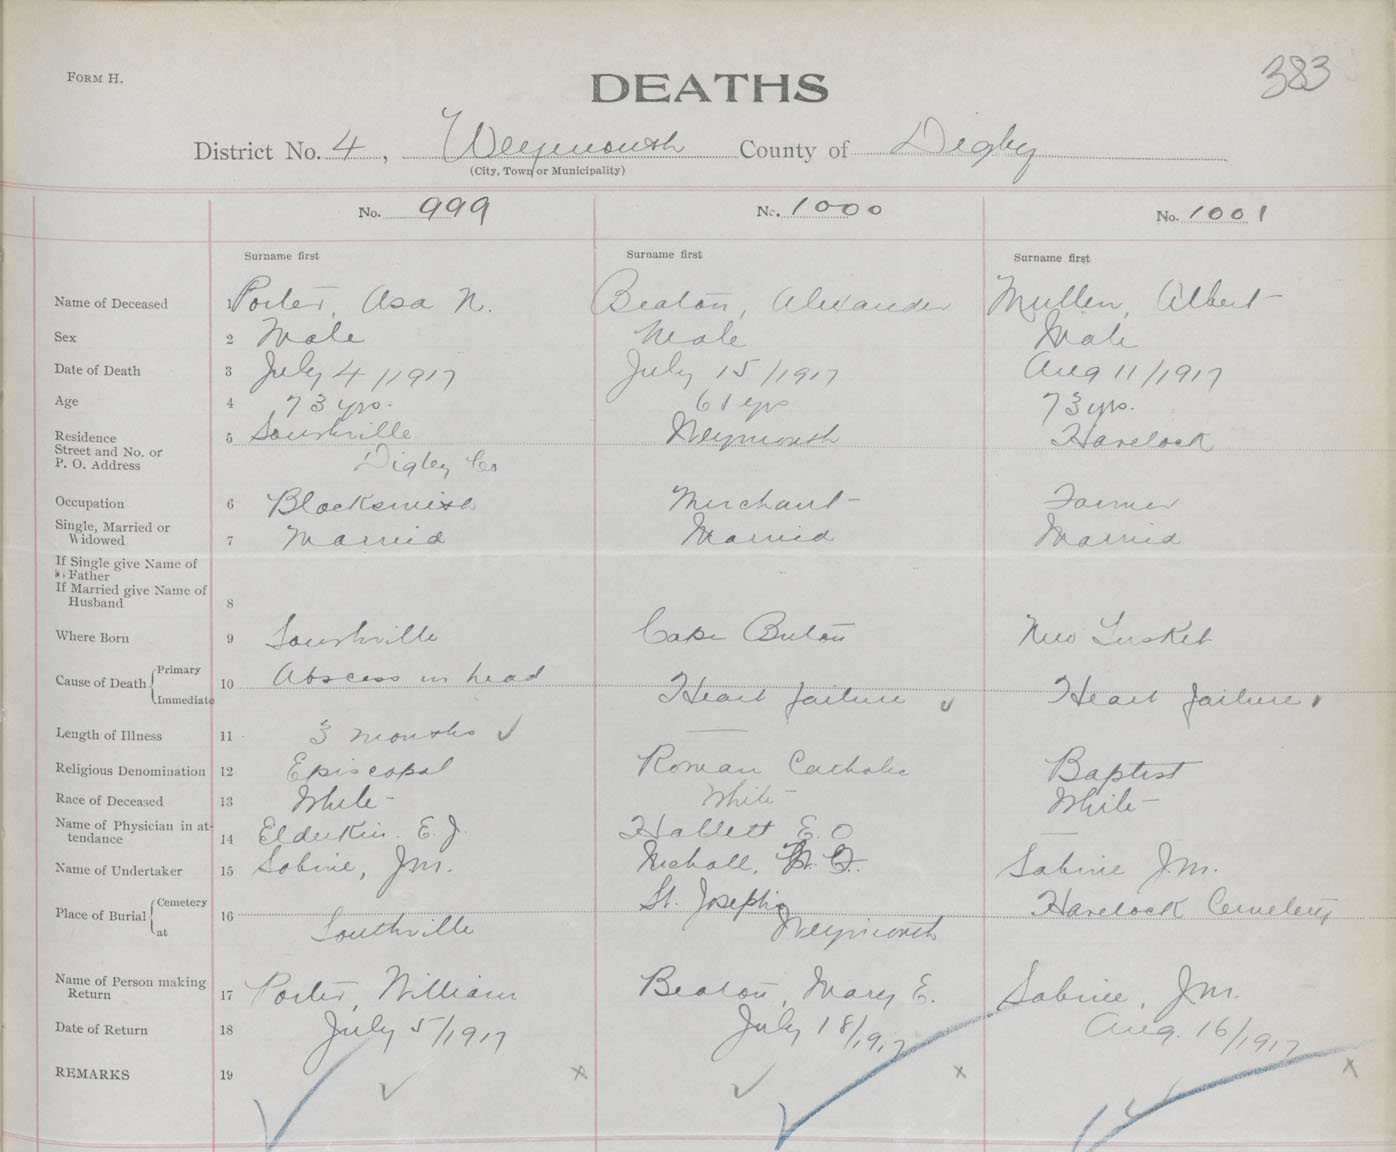 FORM H.
383
DEATHS
District No. 4, Weymouth County of Digby
(City, Town or Municipality)
No. 999 No. 1000 No. 1001
Surname first Surname first Surname first
Name of Deceased 1 Porter, Asa N. Beaton, Alexander Mullen, Albert
Sex 2 Male Male Male
Date of Death 3 July 4/1917 July 15/1917 Aug 11/1917
Age 4 73 yrs. 61 yrs 73 yrs.
Residence Street and No. or P. O. Address 5 Southville Weymouth Havelock
Digby Co
Occupation 6 Blacksmith Merchant Farmer
Single, Married or Widowed 7 Married Married Married
If Single give Name of Father
If Married give Name of Husband 8
Where Born 9 Southville Cape Breton New Tusket
Cause of Death Primary Immediate 10 Abscess in head Heart failure Heart failure
Length of Illness 11 3 months
Religious Denomination 12 Episcopal Roman Catholic Baptist
Race of Deceased 13 White White White
Name of Physician in attendance 14 Elderkin. E. J. Hallett E. O
Name of Undertaker 15 Sabine, J.M. Nicholl, Sabine J.M.
Place of Burial Cemetery at 16 Southville St. Josephs Weymouth Havelock Cemetery
Name of Person making Return 17 Porter, William Beaton, Mary E. Sabine, J.M.
Date of Return 18 July 5/1917 July 18/1917 Aug. 16/1917
REMARKS 19 x x x